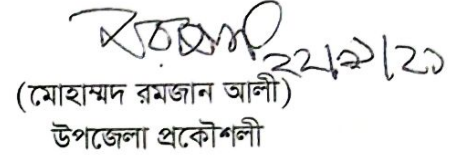 ২২/৯/২১
(মোহাম্মদ রমজান আলী)
উপজেলা প্রকৌশলী